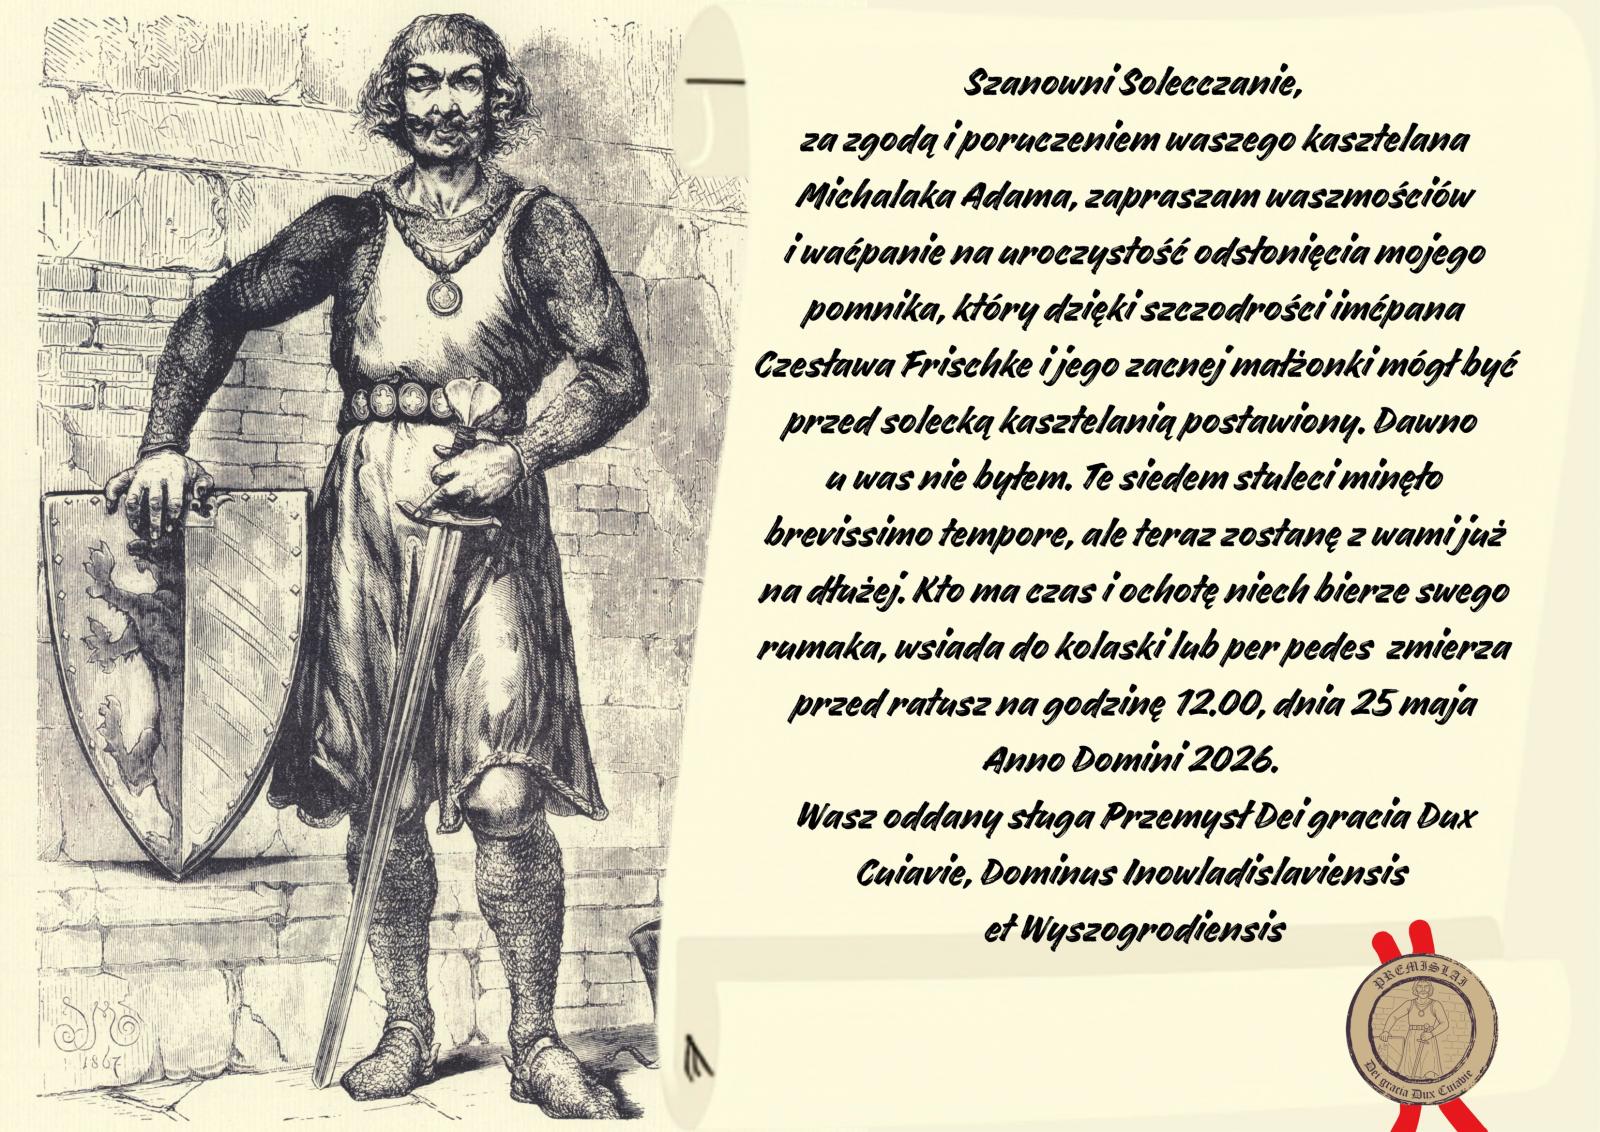 Szanowni Solecczanie,
za zgodą i poruczeniem waszego kasztelana
Michalaka Adama, zapraszam waszmościów
i waćpanie na uroczystość odsłonięcia mojego
pomnika, który dzięki szczodrości imćpana
Czesława Frischke i jego zacnej małżonki mógł być
przed solecką kasztelanią postawiony. Dawno
u was nie byłem. Te siedem stuleci minęło
brevissimo tempore, ale teraz zostanę z wami już
na dłużej. Kto ma czas i ochotę niech bierze swego
rumaka, wsiada do kolaski lub per pedes zmierza
przed ratusz na godzinę 12.00, dnia 25 maja
Anno Domini 2026.
Wasz oddany sługa Przemysł Dei gracia Dux
Cuiavie, Dominus Inowladislaviensis
et Wyszogrodiensis
PREMISLAI
Dei gracia Dux Cuiavie
1867